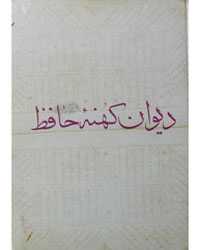 دیوان کهنهٔ حافظ